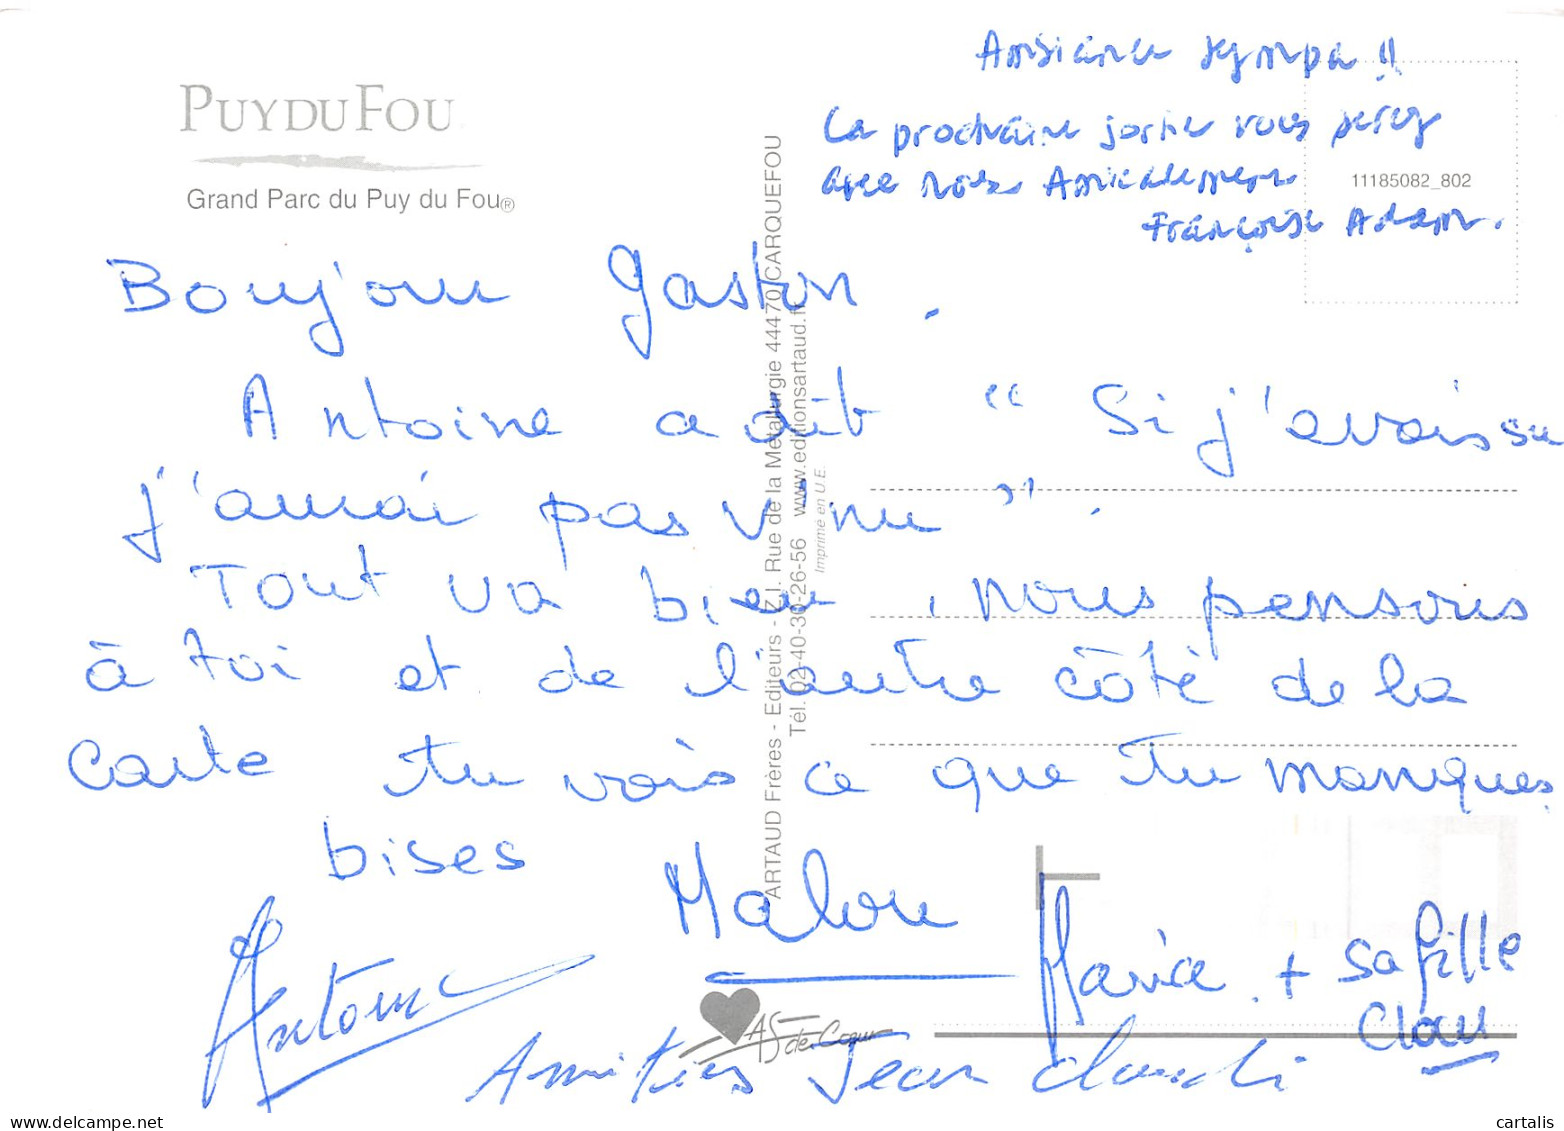 Ambiance sympa !!
La prochaine sortie vous serez
avec nous Amicalement
Françoise Adam.
PUY DU FOU
Grand Parc du Puy du Fou®
11185082_802
Bonjour Gaston.
Antoine a dit “ Si j'avais su
j'aurai pas venu ”.
Tout va bien, nous pensons
à toi et de l'autre côté de la
carte tu vois ce que tu manques
bises Malou
Antoine
Maria + sa fille
Clara
Amitiés Jean Claude
ARTAUD Frères - Editeurs - Z.I. Rue de la Métallurgie 44470 CARQUEFOU
Tél. 02-40-30-26-56 www.editionsartaud.fr
Imprimé en U.E.
AS de Coeur
www.delcampe.net
cartalis